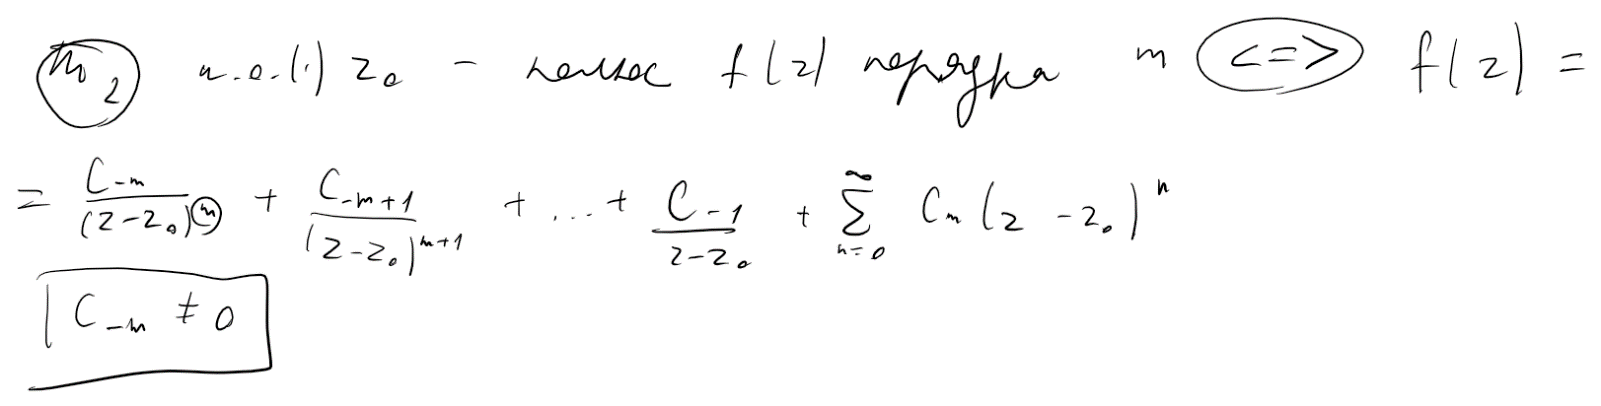 m 2 и.о.(·) z₀ - полюс f(z) порядка m <=> f(z) =
= C₋ₘ/(z-z₀)^m + C₋ₘ₊₁/(z-z₀)^{m+1} + ... + C₋₁/(z-z₀) + ∑_{n=0}^{∞} Cₙ(z-z₀)^n
C₋ₘ ≠ 0